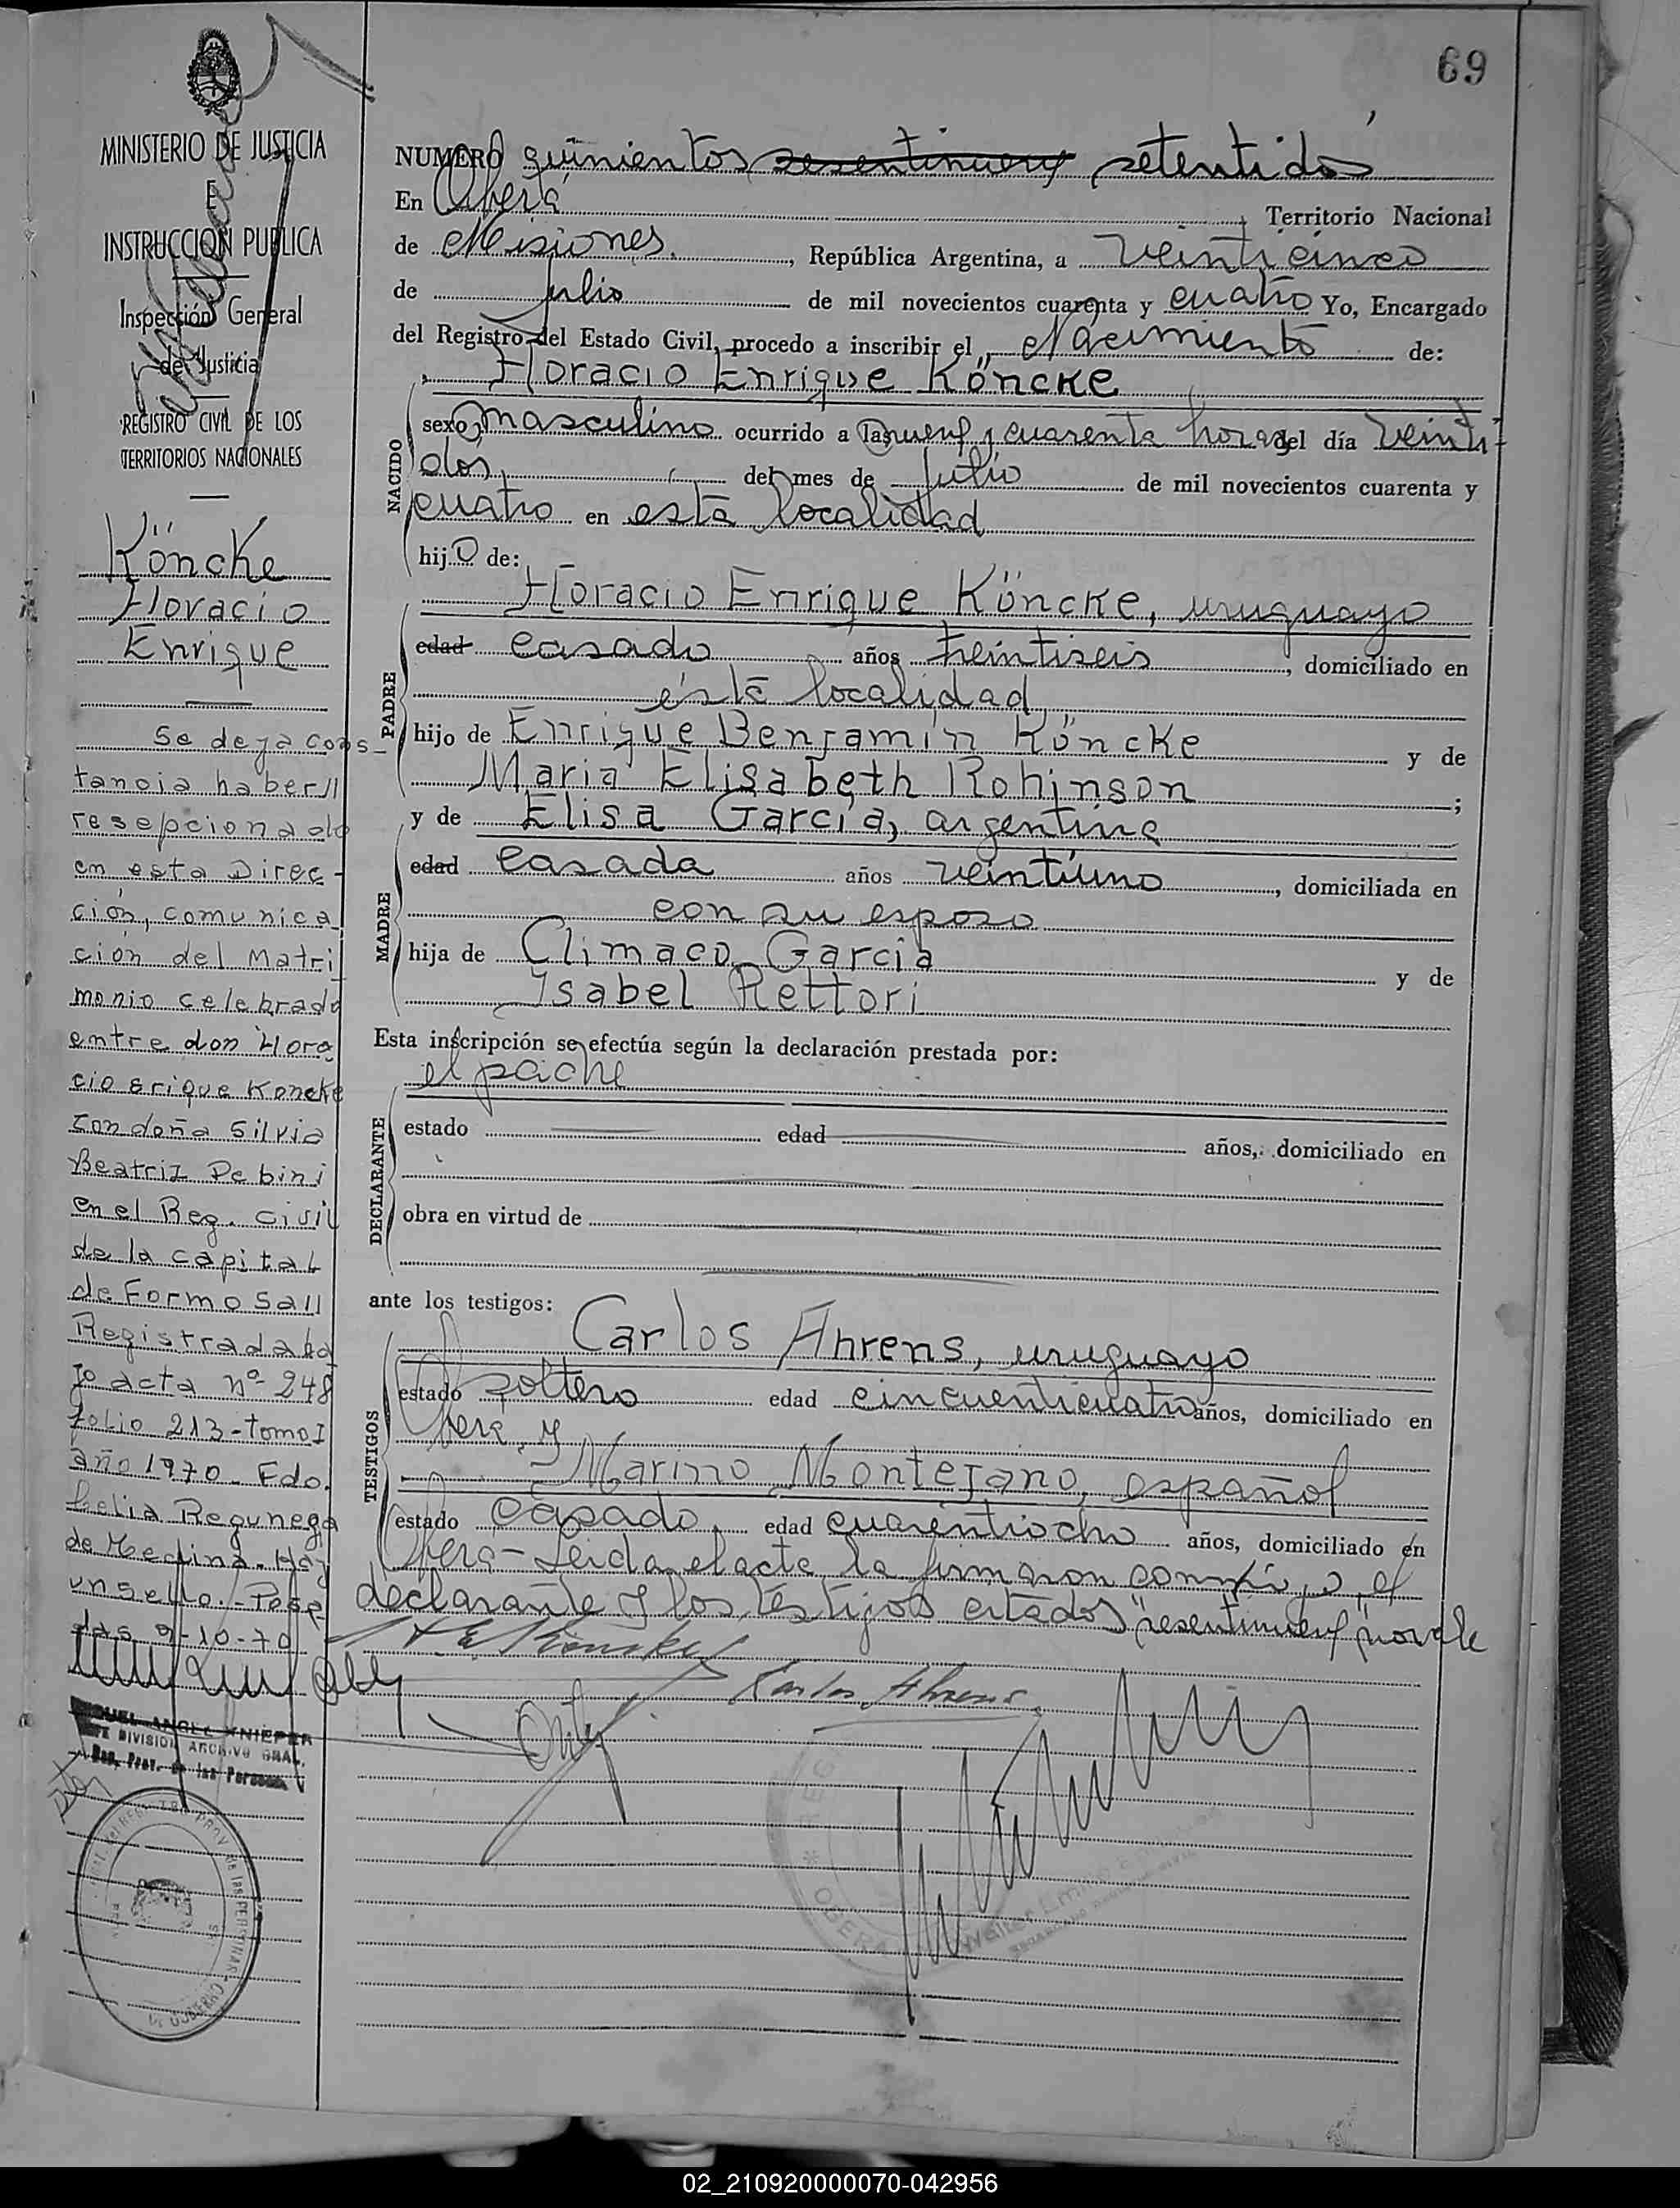 69
MINISTERIO DE JUSTICIA
E
INSTRUCCION PUBLICA
Inspección General
de Justicia
REGISTRO CIVIL DE LOS
TERRITORIOS NACIONALES
Köncke
Horacio
Enrique
Se deja cons-
tancia haber//
resepcionado
en esta Direc-
ción, comunica
ción del Matri
monio celebrado
entre don Hora
cio Erique Koncke
con doña Silvia
Beatriz
en el Reg. Civil
de la capital
de Formosa//
Registrada ba
jo acta nº 248
folio 213-tomo I
año 1970- Fdo.
de Medina. Hay
un sello.- Posa
das 9-10-70
NUMERO quinientos sesentinueve setentidos
En Oberá Territorio Nacional
de Misiones, República Argentina, a veinticinco
de julio de mil novecientos cuarenta y cuatro Yo, Encargado
del Registro del Estado Civil, procedo a inscribir el Nacimiento de:
Horacio Enrique Köncke
NACIDO
sexo masculino ocurrido a las nueve y cuarenta horas del día veinti-
dos del mes de julio de mil novecientos cuarenta y
cuatro en esta localidad
hijo de:
PADRE
Horacio Enrique Köncke, uruguayo
edad casado años treintiseis, domiciliado en
ésta localidad
hijo de Enrique Benjamin Köncke y de
Maria Elisabeth Rohinson;
y de Elisa García, argentina
MADRE
edad casada años veintiuno, domiciliada en
con su esposo
hija de Climaco Garcia y de
Isabel Rettori
Esta inscripción se efectúa según la declaración prestada por:
el padre
DECLARANTE
estado edad años, domiciliado en
obra en virtud de
ante los testigos:
TESTIGOS
Carlos Ahrens, uruguayo
estado soltero edad cincuenticuatro años, domiciliado en
Oberá, y
Marino Montejano, español
estado casado, edad cuarentiocho años, domiciliado en
Oberá- Leida el acta la firmaron conmigo, el
declarante y los testigos citados "sesentinueve" no vale
Carlos Ahrens
OBERA
02_210920000070-042956